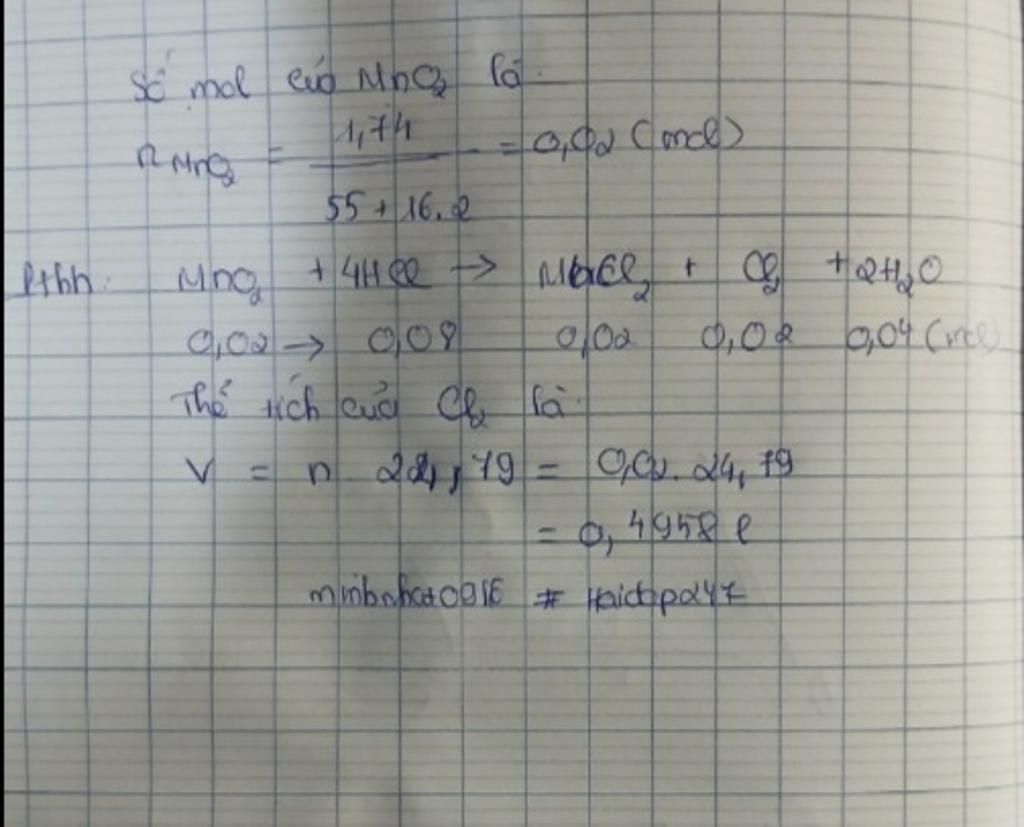 Số mol của MnO₂ là:
n MnO₂ = 1,74 / 55 + 16.2 = 0,02 (mol)
Pthh: MnO₂ + 4HCl → MnCl₂ + Cl₂ + 2H₂O
0,02 → 0,08 0,02 0,02 0,04 (mol)
Thể tích của Cl₂ là:
V = n. 24,79 = 0,02. 24,79
= 0,4958 l